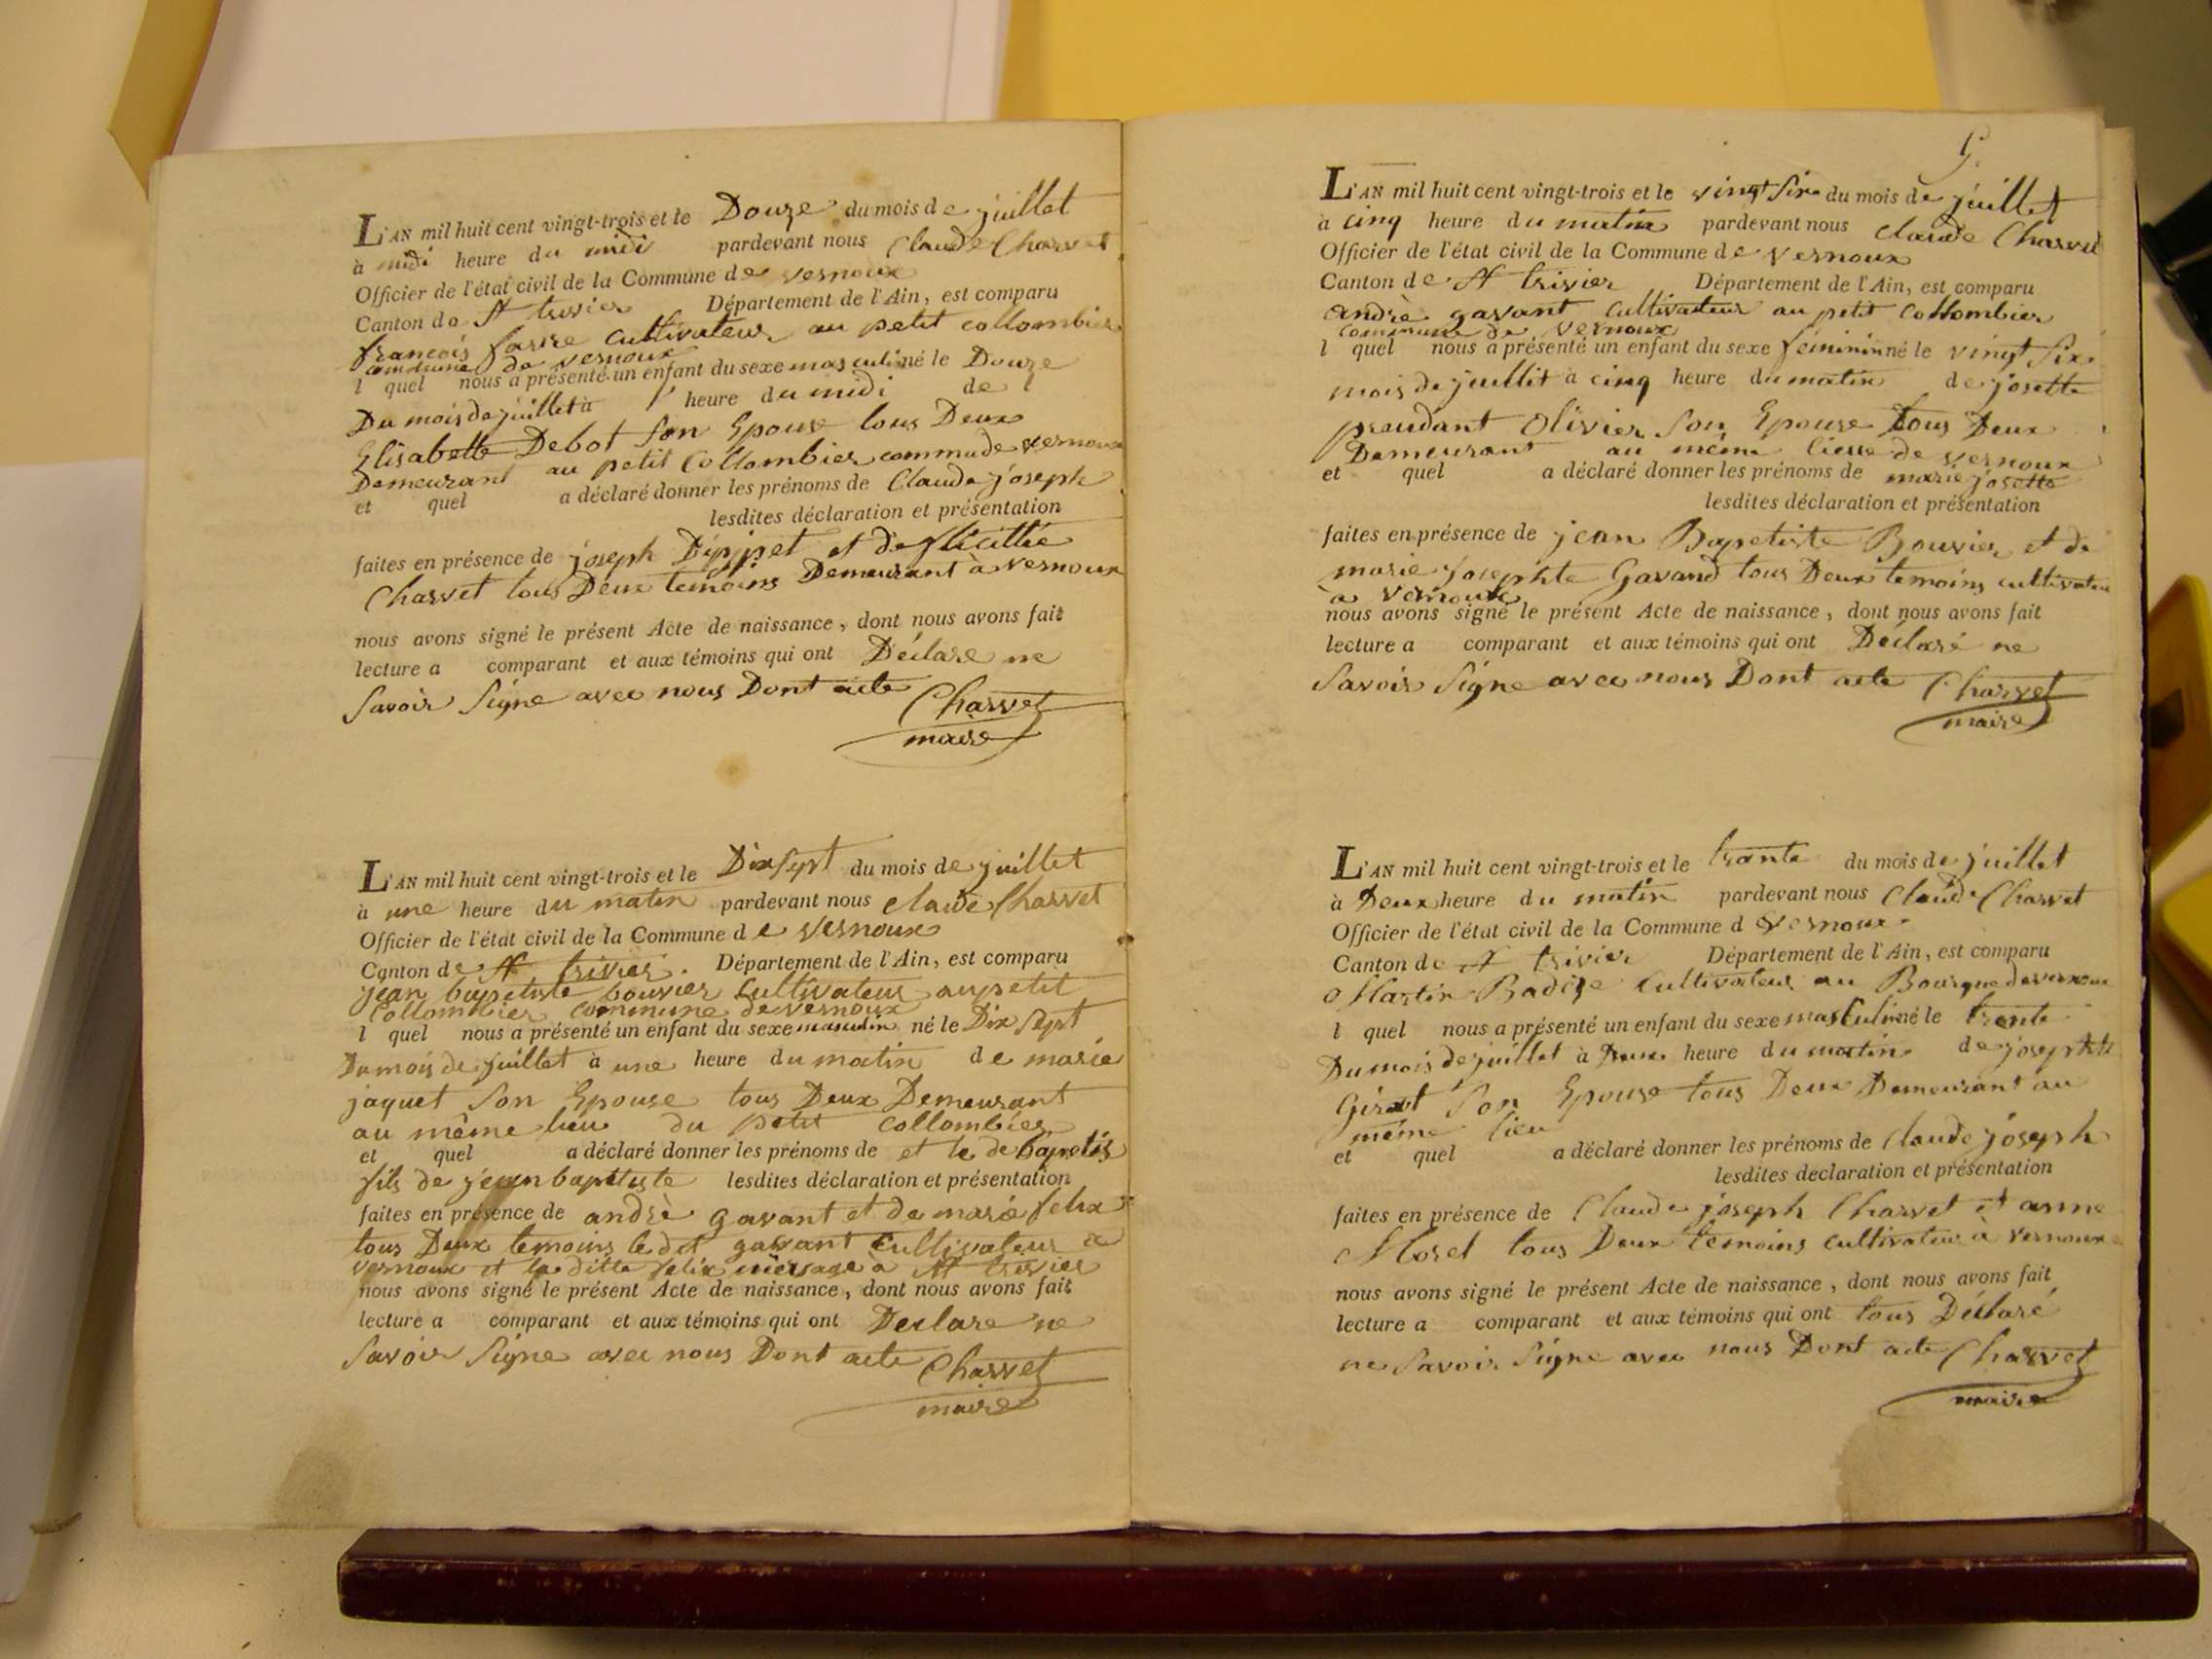 L'AN mil huit cent vingt-trois et le Douze du mois de juillet
à midi heure du midi pardevant nous Claude Charvet
Officier de l'état civil de la Commune de vernoux
Canton de St trivier Département de l'Ain, est comparu
francois farre Cultivateur au petit collombier
commune de vernoux
l quel nous a présenté un enfant du sexe masculin né le Douze
Du mois de juillet à heure du midi de
Elisabette Debot son Epouse tous Deux
Demeurant au petit Collombier commude vernoux
et quel a déclaré donner les prénoms de Claude joseph
lesdites déclaration et présentation
faites en présence de joseph et de
Charvet tous Deux temoins Demeurant à vernoux
nous avons signé le présent Acte de naissance, dont nous avons fait
lecture a comparant et aux témoins qui ont Déclare ne
Savoir Signe avec nous Dont acte Charvet
maire
L'AN mil huit cent vingt-trois et le Dix sept du mois de juillet
à une heure du matin pardevant nous claude Charvet
Officier de l'état civil de la Commune de vernoux
Canton de St trivier. Département de l'Ain, est comparu
jean baptiste bouvier Cultivateur au petit
Collombier commune de vernoux
l quel nous a présenté un enfant du sexe masculin né le Dix sept
Du mois de juillet à une heure du matin de marie
jaquet Son Epouse tous Deux Demeurant
au même lieu du petit collombier
et quel a déclaré donner les prénoms de et le de
fils de jean baptiste lesdites déclaration et présentation
faites en présence de andrè gavant et de marie felix
tous Deux temoins le dit gavant Cultivateur a
vernoux et la ditte felix à St trivier
nous avons signé le présent Acte de naissance, dont nous avons fait
lecture a comparant et aux témoins qui ont Declare ne
Savoir Signe avec nous Dont acte Charvet
maire
L'AN mil huit cent vingt-trois et le vingt Six du mois de juillet
à cinq heure du matin pardevant nous claude Charvet
Officier de l'état civil de la Commune de vernoux
Canton de St trivier Département de l'Ain, est comparu
andrè gavant Cultivateur au petit Collombier
commune de vernoux
l quel nous a présenté un enfant du sexe feminin né le vingt Six
mois de juillit à cinq heure du matin de josette
praudant Olivier Son Epouse tous Deux
Demeurant au même de vernoux
et quel a déclaré donner les prénoms de marie josette
lesdites déclaration et présentation
faites en présence de jean Bapetiste Bouvier et de
marie Gavand tous Deux temoins cultivateur
a vernoux
nous avons signé le présent Acte de naissance, dont nous avons fait
lecture a comparant et aux témoins qui ont Déclaré ne
Savoir Signe avec nous Dont acte Charvet
maire
L'AN mil huit cent vingt-trois et le trante du mois de juillet
à Deux heure du matin pardevant nous Claude Charvet
Officier de l'état civil de la Commune d vernoux
Canton de St trivier Département de l'Ain, est comparu
Martin Cultivateur au de vernoux
l quel nous a présenté un enfant du sexe masculin né le trente
Du mois de juillet à Deux heure du matin de
Son Epouse tous Deux Demeurant au
même lieu
et quel a déclaré donner les prénoms de Claude joseph
lesdites declaration et présentation
faites en présence de Claude joseph Charvet et anne
Morel tous Deux temoins cultivateur à vernoux
nous avons signé le présent Acte de naissance, dont nous avons fait
lecture a comparant et aux témoins qui ont tous Déclaré
ne Savoir Signe avec nous Dont acte Charvet
maire